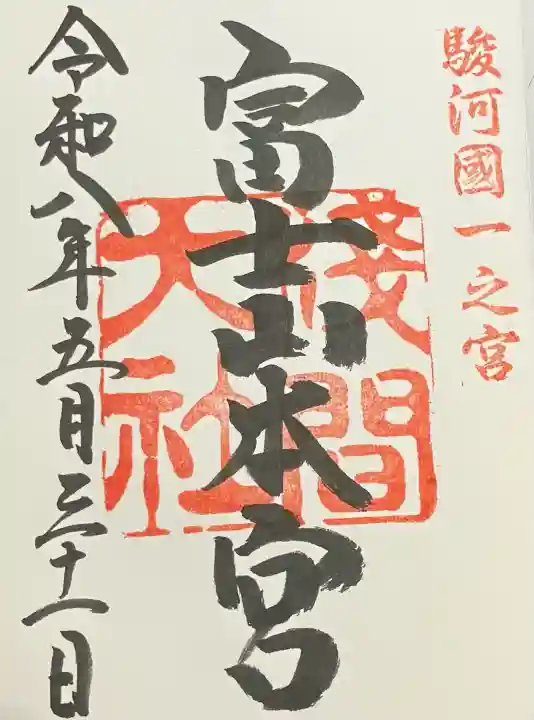 駿河國一之宮
富士山本宮
淺間
大社
令和八年五月三十一日